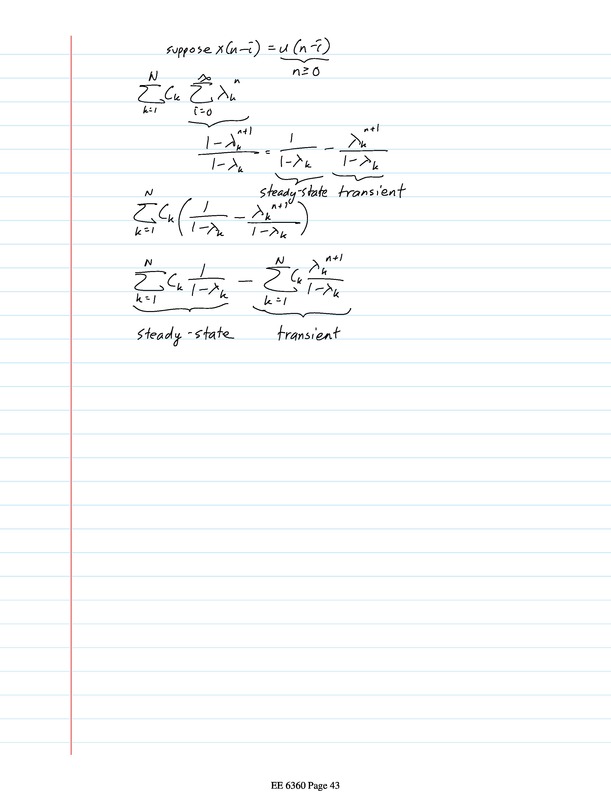 suppose x(n-i) = u(n-i)
n≥0
∑_{k=1}^{N} C_k ∑_{i=0}^{∞} λ_k^n
(1-λ_k^{n+1})/(1-λ_k) = 1/(1-λ_k) - λ_k^{n+1}/(1-λ_k)
steady-state transient
∑_{k=1}^{N} C_k (1/(1-λ_k) - λ_k^{n+1}/(1-λ_k))
∑_{k=1}^{N} C_k 1/(1-λ_k) - ∑_{k=1}^{N} C_k λ_k^{n+1}/(1-λ_k)
steady-state transient
EE 6360 Page 43